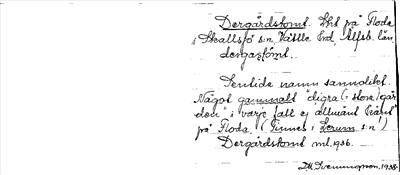 Dergårdstomt. Lht på Floda
i Skallsjö sn, Vättle hd, Älfsb. län
dergaståmt.
Sentida namn sannolikt.
Något gammalt "digra (= stora) går
den" i varje fall ej allmänt känt
på Floda. (Finnes i Lerum sn!)
Dergårdstomt ml. 1936.
1938.